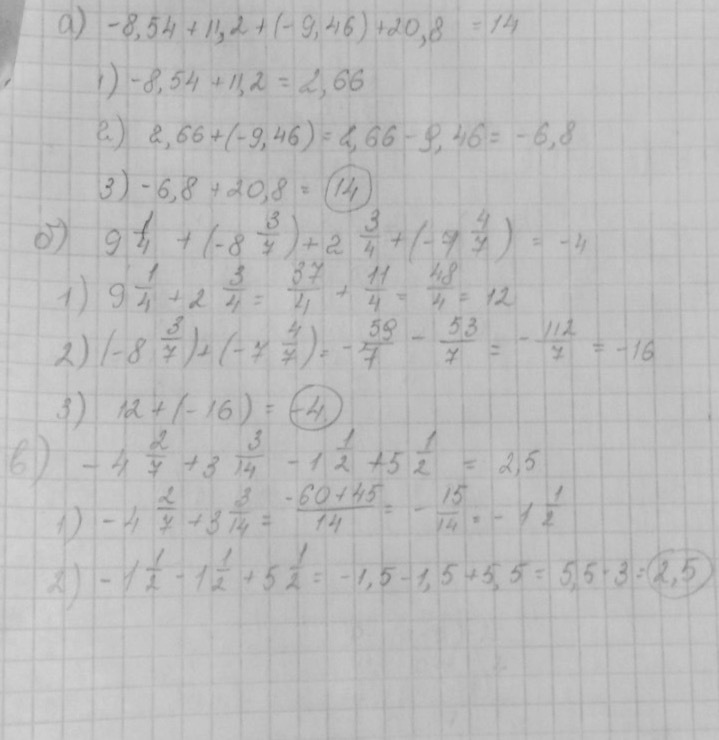 а) -8,54 + 11,2 + (-9,46) + 20,8 = 14
1) -8,54 + 11,2 = 2,66
2) 2,66 + (-9,46) = 2,66 - 9,46 = -6,8
3) -6,8 + 20,8 = 14
б) 9 1/4 + (-8 3/7) + 2 3/4 + (-7 4/7) = -4
1) 9 1/4 + 2 3/4 = 37/4 + 11/4 = 48/4 = 12
2) (-8 3/7) + (-7 4/7) = -59/7 - 53/7 = -112/7 = -16
3) 12 + (-16) = -4
в) -4 2/7 + 3 3/14 - 1 1/2 + 5 1/2 = 2,5
1) -4 2/7 + 3 3/14 = (-60+45)/14 = -15/14 = -1 1/2
2) -1 1/2 - 1 1/2 + 5 1/2 = -1,5 - 1,5 + 5,5 = 5,5 - 3 = 2,5